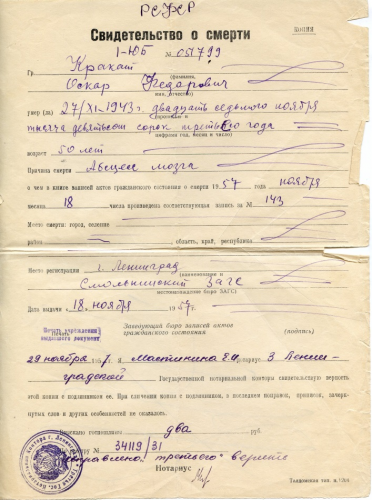 РСФСР
КОПИЯ
Свидетельство о смерти
I-ЮБ № 051799
Гр. Кракат
(фамилия,
Оскар Федарович
имя, отчество)
умер (ла) 27/XI-1943 г. двадцать седьмого ноября
(прописью и
тысяча девятьсот сорок третьего года
цифрами год, месяц и число)
возраст 50 лет
Причина смерти Абсцесс мозга
о чем в книге записей актов гражданского состояния о смерти 1957 года ноября
месяца 18 числа произведена соответствующая запись за № 143
Место смерти: город, селение
район область, край, республика
Место регистрации г. Ленинград
(наименование и
Смольнинский ЗАГС
местонахождение бюро ЗАГС)
Дата выдачи „18" ноября 1957 г.
Печать учреждения
выдавшего документ.
Заведующий бюро записей актов
гражданского состояния
(подпись)
29 ноября 1957 г. Я Мастинина Е.И. нотариус 3 Ленин-
градской Государственной нотариальной конторы свидетельствую верность
этой копии с подлинником ее. При сличении копии с подлинником, в последнем поправок, приписок, зачерк-
нутых слов и других особенностей не оказалось.
Взыскано госпошлины два руб.
По реестру № 34119/31
исправлено „третьего" верить
Нотариус